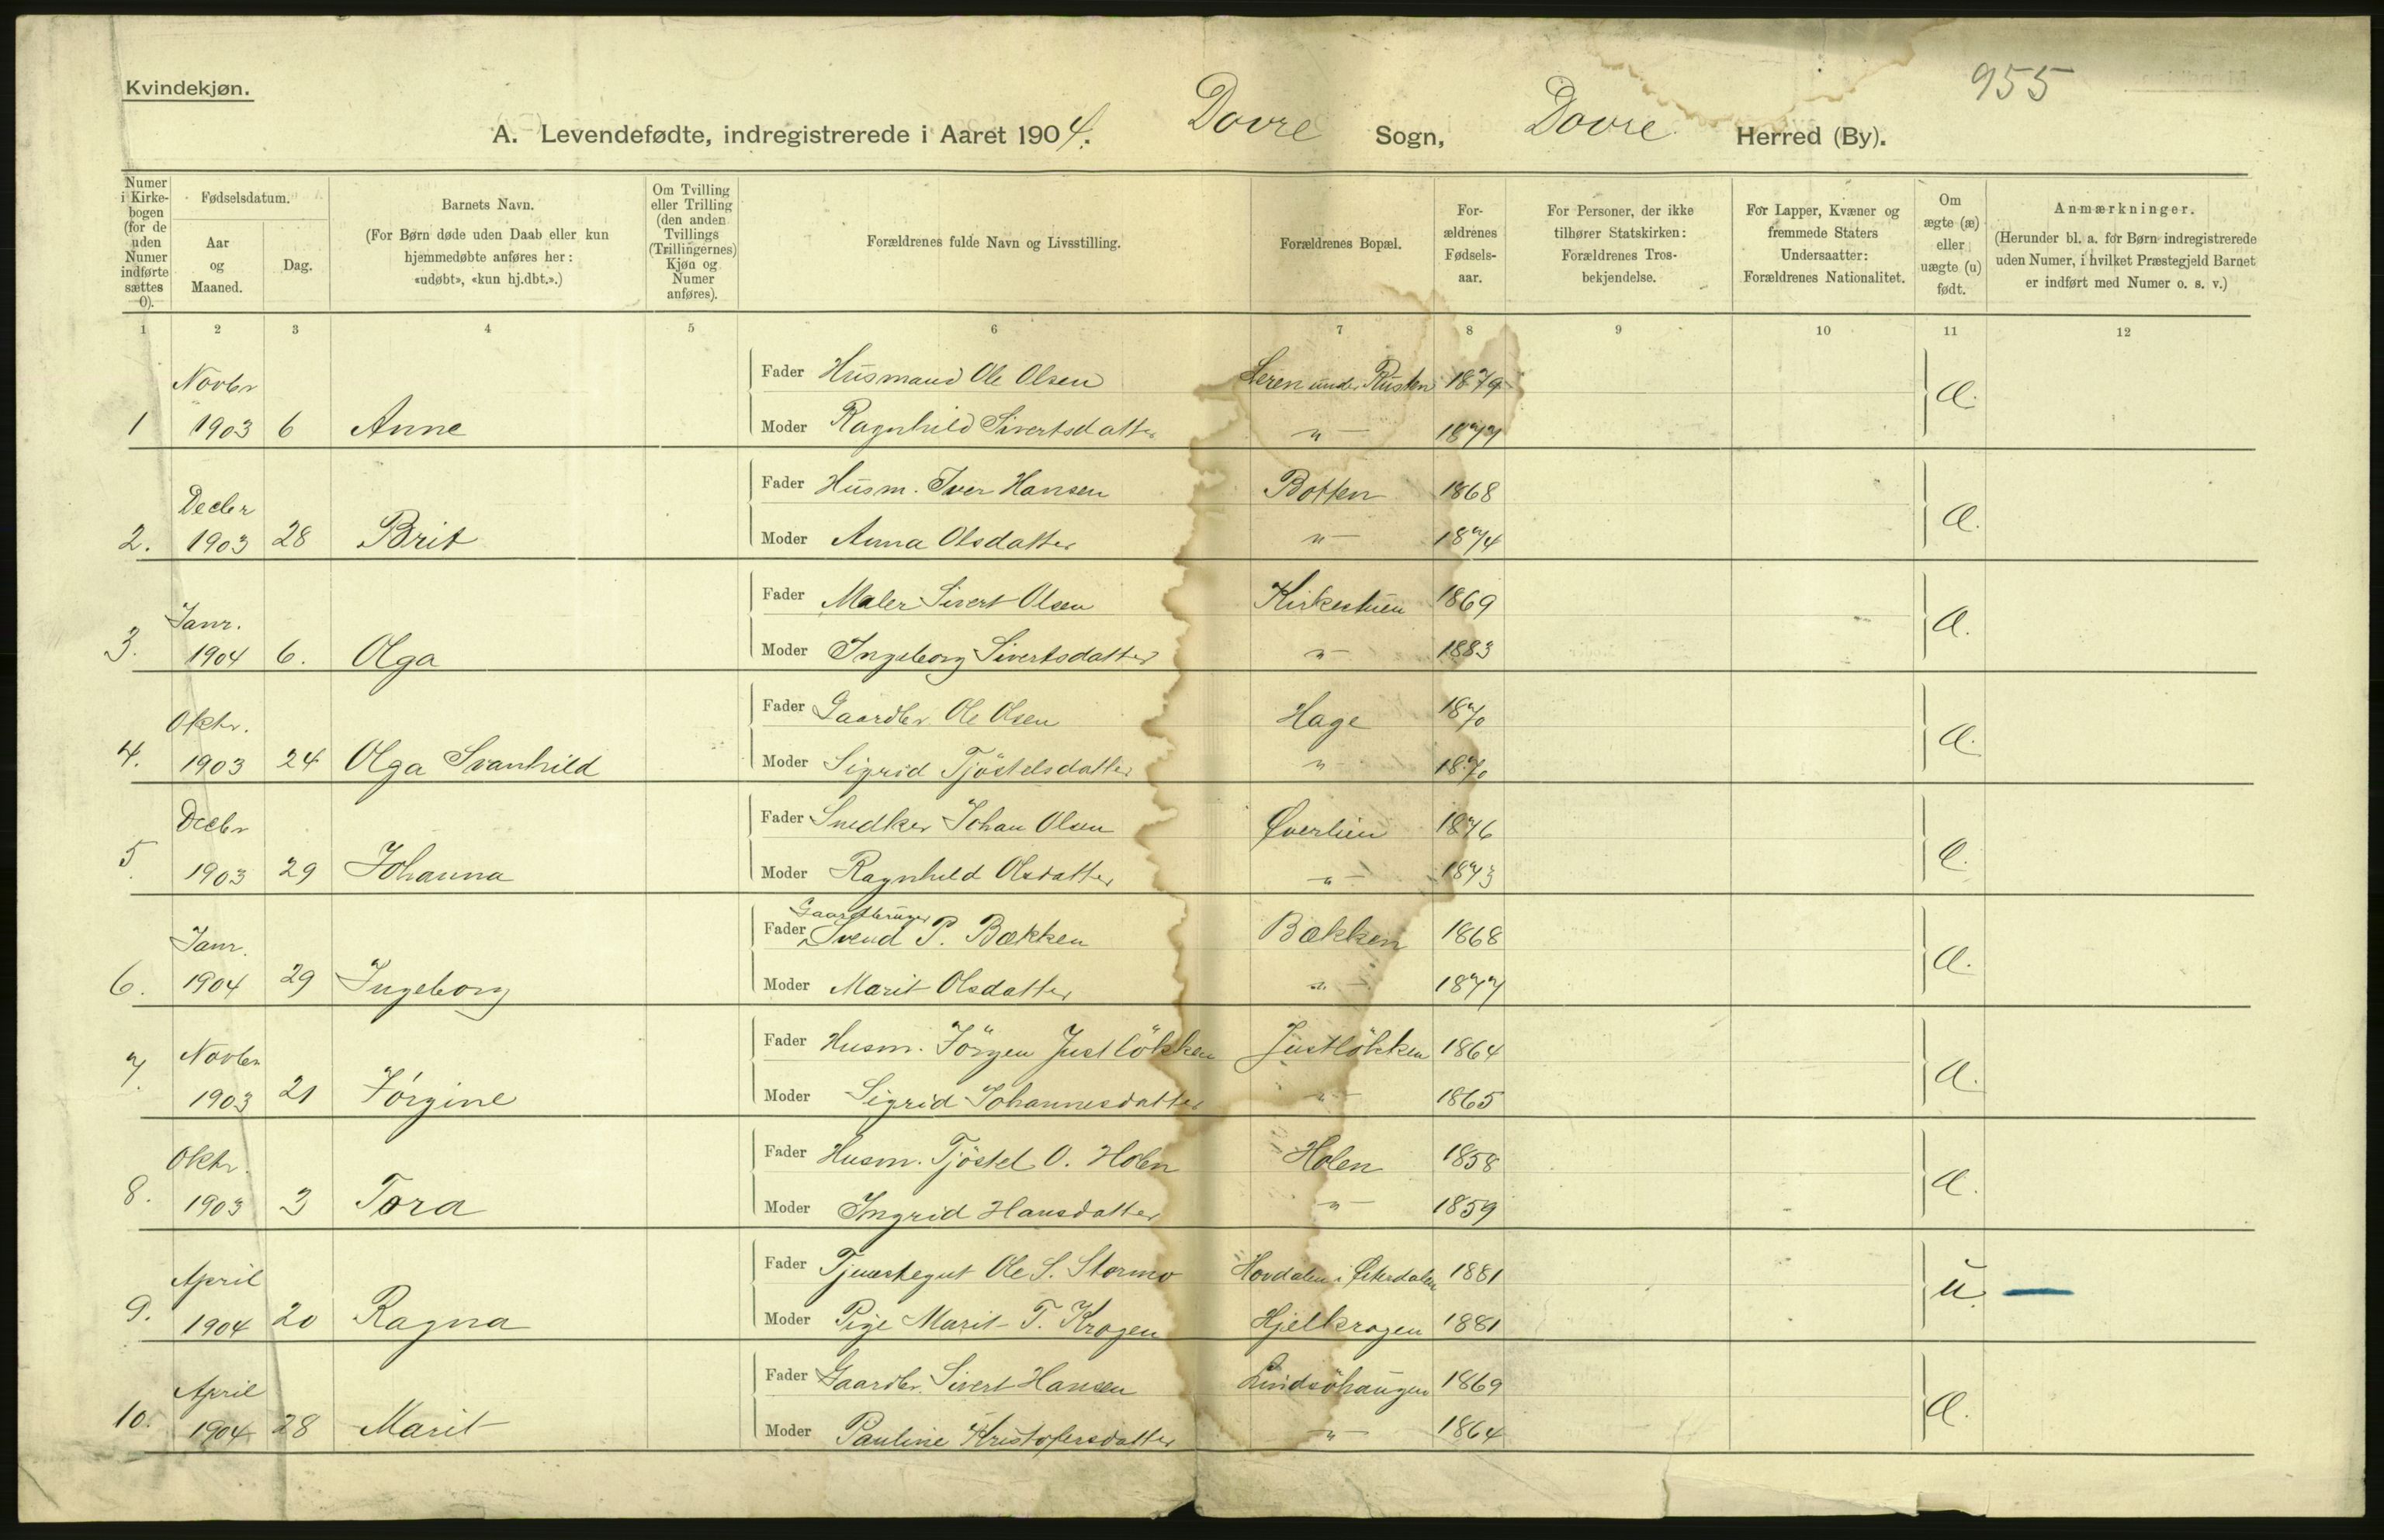 Kvindekjøn.
955
A. Levendefødte, indregistrerede i Aaret 1904. Dovre Sogn, Dovre Herred (By).
Numer i Kirke-bogen (for de uden Numer indførte sættes 0).
Fødselsdatum.
Aar og Maaned.
Dag.
Barnets Navn.
(For Børn døde uden Daab eller kun
hjemmedøbte anføres her:
«udøbt», «kun hj.dbt.».)
Om Tvilling
eller Trilling
(den anden
Tvillings
(Trillingernes)
Kjøn og
Numer
anføres).
Forældrenes fulde Navn og Livsstilling.
Forældrenes Bopæl.
For-
ældrenes
Fødsels-
aar.
For Personer, der ikke
tilhører Statskirken:
Forældrenes Tros-
bekjendelse.
For Lapper, Kvæner og
fremmede Staters
Undersaatter:
Forældrenes Nationalitet.
Om
ægte (æ)
eller
uægte (u)
født.
Anmærkninger.
(Herunder bl. a. for Børn indregistrerede
uden Numer, i hvilket Præstegjeld Barnet
er indført med Numer o. s. v.)
1 2 3 4 5 6 7 8 9 10 11 12
Novbr Fader Husmand Ole Olsen under Rusten 1879
1 1903 6 Anne Moder Ragnhild Sivertsdatter " 1877 Æ.
Decbr Fader Husm. Iver Hansen Botten 1868
2. 1903 28 Brit Moder Anna Olsdatter " 1874 Æ.
Janr. Fader Maler Sivert Olsen Kirkestuen 1869
3. 1904 6. Olga Moder Ingeborg Sivertsdatter " 1883 Æ.
Oktr. Fader Gaardbr Ole Olsen Hage 1870
4. 1903 24 Olga Svanhild Moder Sigrid Tjöstelsdatter " 1870 Æ.
Decbr Fader Snedker Johan Olsen Øverlien 1876
5. 1903 29 Johanna Moder Ragnhild Olsdatter " 1873 Æ.
Gaardbruger
Janr. Fader Svend P. Bækken Bækken 1868
6. 1904 29 Ingeborg Moder Marit Olsdatter " 1877 Æ.
Novbr Fader Husm. Jörgen Justlökken Justlökken 1864
7. 1903 21 Jörgine Moder Sigrid Johannesdatter " 1865 Æ.
Oktr. Fader Husm. Tjöstel O. Holen Holen 1858
8. 1903 3 Tora Moder Ingrid Hansdatter " 1859 Æ.
April Fader Tjenestegut Ole S. Stormo i Østerdalen 1881
9. 1904 20 Ragna Moder Pige Marit T. Krogen Hjelkrogen 1881 u.
April Fader Gaardbr. Sivert Hansen Lindsöhaugen 1869
10. 1904 28 Marit Moder Pauline Kristofersdatter " 1864 Æ.